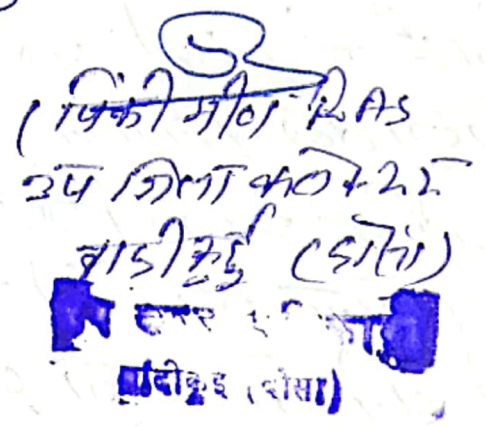 (पिंकी मीणा RAS
उप जिला कलेक्टर
बांदीकुई (दौसा)
बांदीकुइ (दौसा)